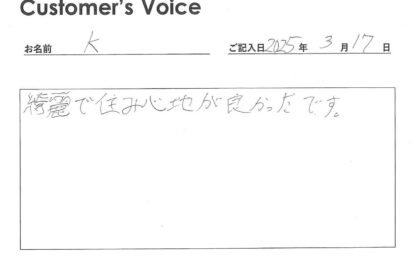 Customer's Voice
お名前 K ご記入日2025年 3月17日
綺麗で住み心地が良かったです。